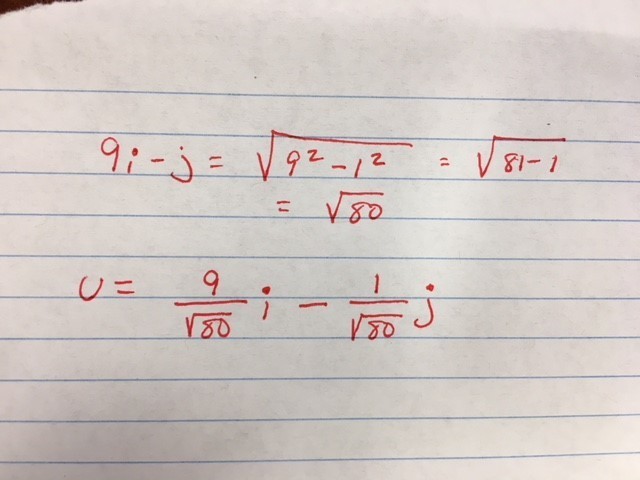 9i - j = √9² - 1² = √81 - 1
= √80
U = 9/√80 i - 1/√80 j